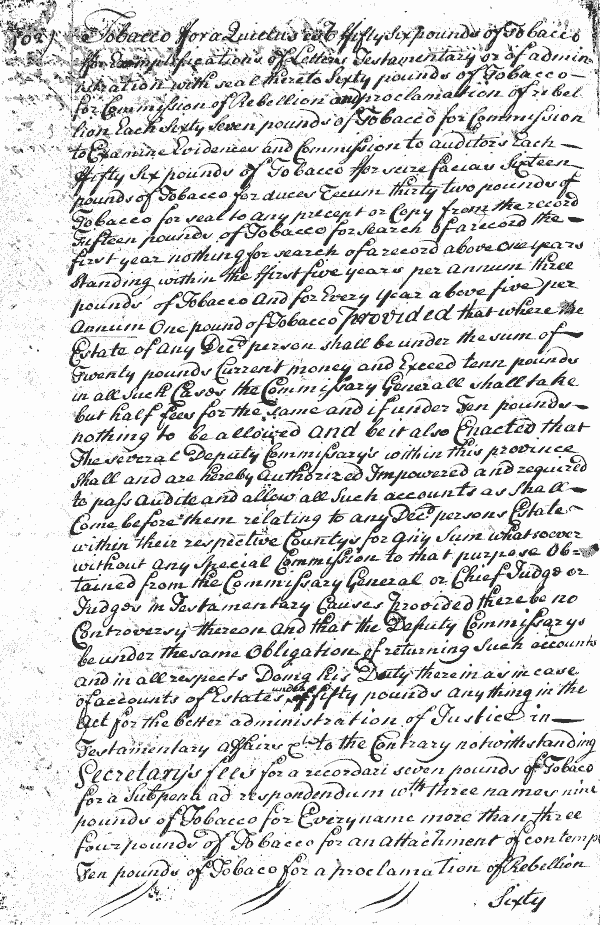 Tobacco ffor a Quietus est ffifty Six pounds of Tobacco
ffor Exemplifications of Letters Testamentary or of admin
nistration with seal thereto Sixty pounds of Tobacco
for Commission of Rebellion and proclamation of rebel
lion Each Sixty Seven pounds of Tobacco for Commission
to Examine Evidences and Commission to auditors Each
ffifty Six pounds of Tobacco ffor scire facias Sixteen
pounds of Tobacco for duces Tecum thirty two pounds of
Tobacco for seal to any precept or Copy from the record
Fifteen pounds of Tobacco for search of a record the
first year nothing for search of a record above one years
standing within the ffirst five years per annum three
pounds of Tobacco And for Every year above five per
Annum One pound of Tobacco Provided that where the
Estate of any Decd person shall be under the sum of
Twenty pounds Current money and Exceed tenn pounds
in all such Cases the Commissary Generall shall take
but half fees for the same and if under Ten pounds
nothing to be allowed and be it also Enacted that
The several Deputy Commissary's within this province
shall and are hereby Authorized Impowered and required
to pass Audite and allow all Such accounts as Shall
Come before them relating to any Decd persons Estate
within their respective Countys for any Sum whatsoever
without any Special Commission to that purpose Ob=
tained from the Commissary General or Chief Judge or
Judges in Testamentary Causes Provided there be no
Controversy thereon And that the Deputy Commissarys
be under the same Obligation of returning Such accounts
and in all respects Doing his Duty therein as in case
of accounts of Estates under ffifty pounds any thing in the
Act for the better administration of Justice in
Testamentary affairs &c to the Contrary notwithstanding
Secretary's fees for a recordari seven pounds of Tobaco
for a Subpena ad respondendum wth three names nine
pounds of Tobacco for Every name more than three
four pounds of Tobacco for an attachment of contempt
Ten pounds of Tobaco for a proclamation of Rebellion
Sixty